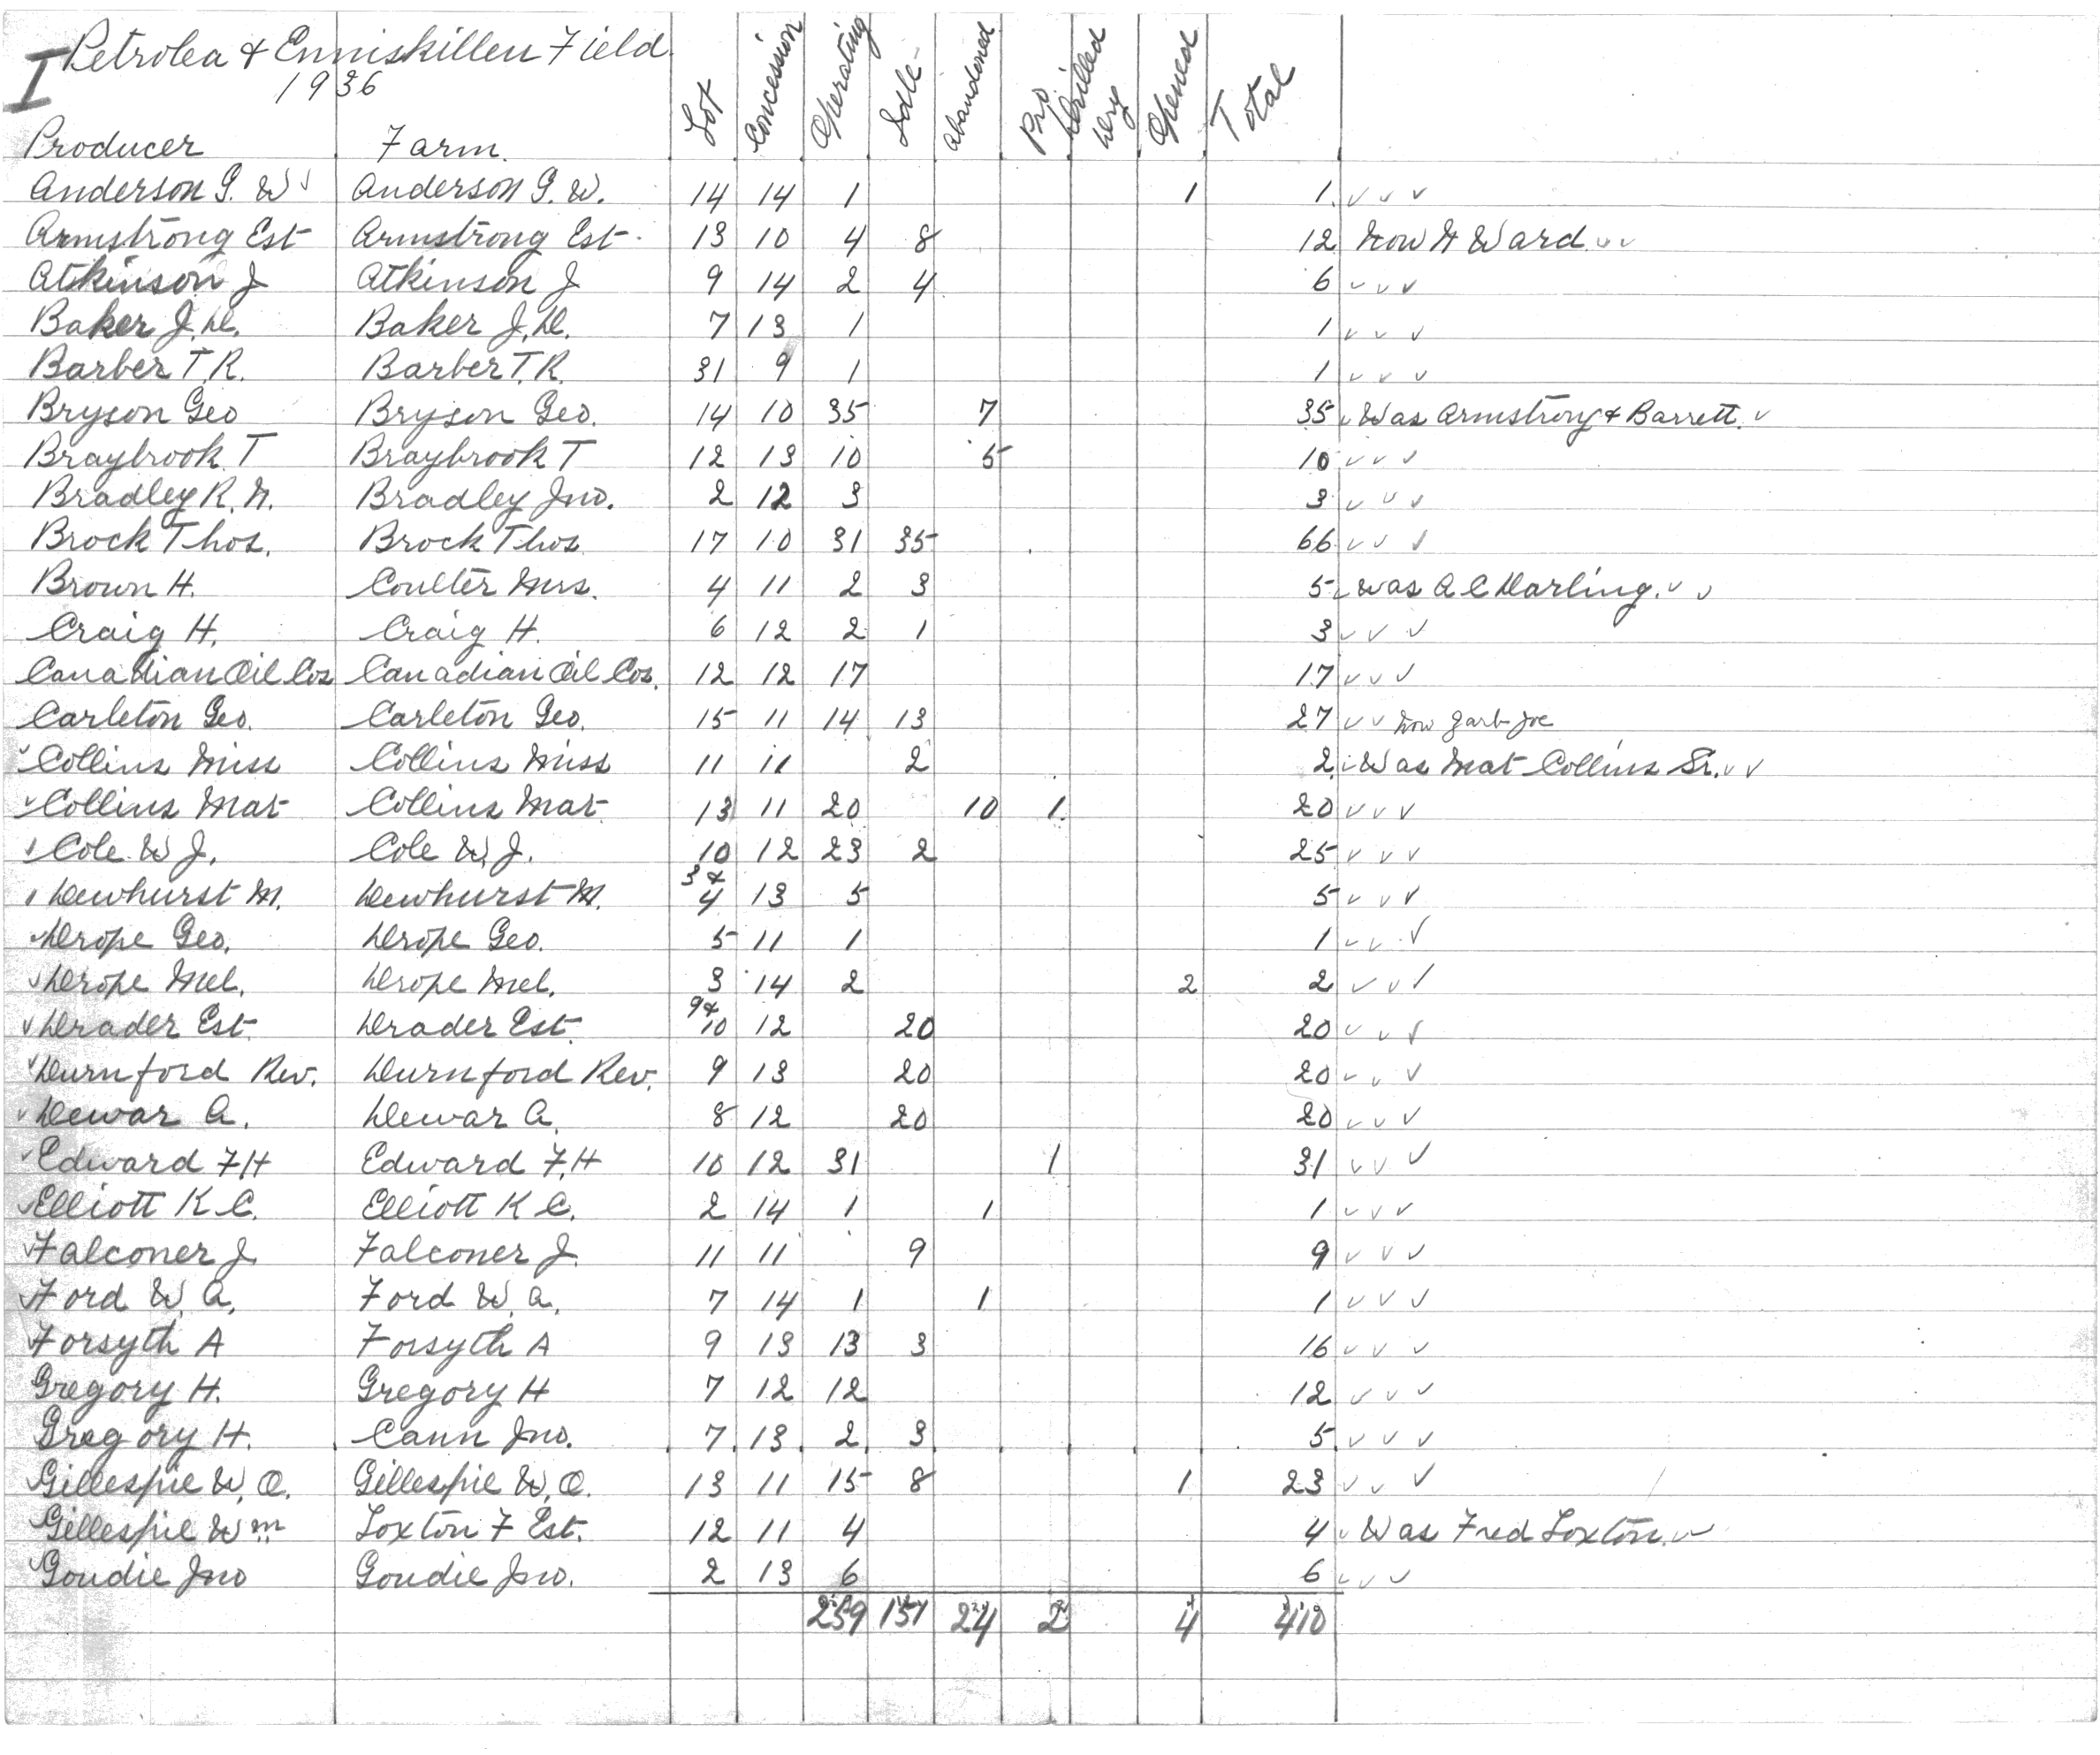 I Petrolea & Enniskillen Field
1936
Producer Farm. Lot Concession Operating Idle Abandoned Pro Drilled Dry Opened Total
Anderson G. W Anderson G. W. 14 14 1 1 1
Armstrong Est Armstrong Est. 13 10 4 8 12 Now H Ward
Atkinson J Atkinson J 9 14 2 4 6
Baker J. D. Baker J. D. 7 13 1 1
Barber T. R. Barber T. R. 31 9 1 1
Bryson Geo Bryson Geo. 14 10 35 7 35 Was Armstrong & Barrett.
Braybrook T Braybrook T 12 13 10 5 10
Bradley R. N. Bradley Jno. 2 12 3 3
Brock Thos. Brock Thos 17 10 31 35 66
Brown H. Coulter Mrs. 4 11 2 3 5 Was A C Darling.
Craig H. Craig H. 6 12 2 1 3
Canadian Oil Cos Canadian Oil Cos. 12 12 17 17
Carleton Geo. Carleton Geo. 15 11 14 13 27 Now Joe
Collins Miss Collins Miss 11 11 2 2 Was Mat Collins Sr.
Collins Mat Collins Mat 13 11 20 10 1 20
Cole W J. Cole W. J. 10 12 23 2 25
Dewhurst M. Dewhurst M. 3 & 4 13 5 5
Drope Geo. Drope Geo. 5 11 1 1
Drope Mel. Drope Mel. 3 14 2 2 2
Drader Est. Drader Est. 9 & 10 12 20 20
Durnford Rev. Durnford Rev. 9 13 20 20
Dewar A. Dewar A. 8 12 20 20
Edward F. H Edward F. H 10 12 31 1 31
Elliott K C. Elliott K C. 2 14 1 1 1
Falconer J Falconer J. 11 11 9 9
Ford W. A. Ford W. A. 7 14 1 1 1
Forsyth A Forsyth A 9 13 13 3 16
Gregory H. Gregory H 7 12 12 12
Gregory H. Cann Jno. 7 13 2 3 5
Gillespie W. O. Gillespie W. O. 13 11 15 8 1 23
Gillespie Wm Loxton F Est. 12 11 4 4 Was Fred Loxton
Goudie Jno Goudie Jno. 2 13 6 6
259 151 24 2 4 410